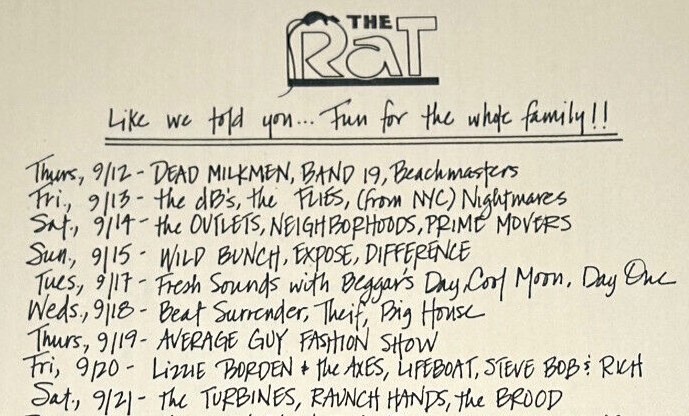 THE
RaT
Like we told you... Fun for the whole family!!
Thurs, 9/12 - DEAD MILKMEN, BAND 19, Beachmasters
Fri, 9/13 - the dB's, the FLIES, (from NYC) Nightmares
Sat, 9/14 - the OUTLETS, NEIGHBORHOODS, PRIME MOVERS
Sun, 9/15 - WILD BUNCH, EXPOSE, DIFFERENCE
Tues, 9/17 - Fresh Sounds with Beggar's Day, Cool Moon, Day One
Weds, 9/18 - Beat Surrender, Theif, Big House
Thurs, 9/19 - AVERAGE GUY FASHION SHOW
Fri, 9/20 - Lizzie BORDEN + the AXES, LIFEBOAT, STEVE BOB & RICH
Sat, 9/21 - the TURBINES, RAUNCH HANDS, the BROOD